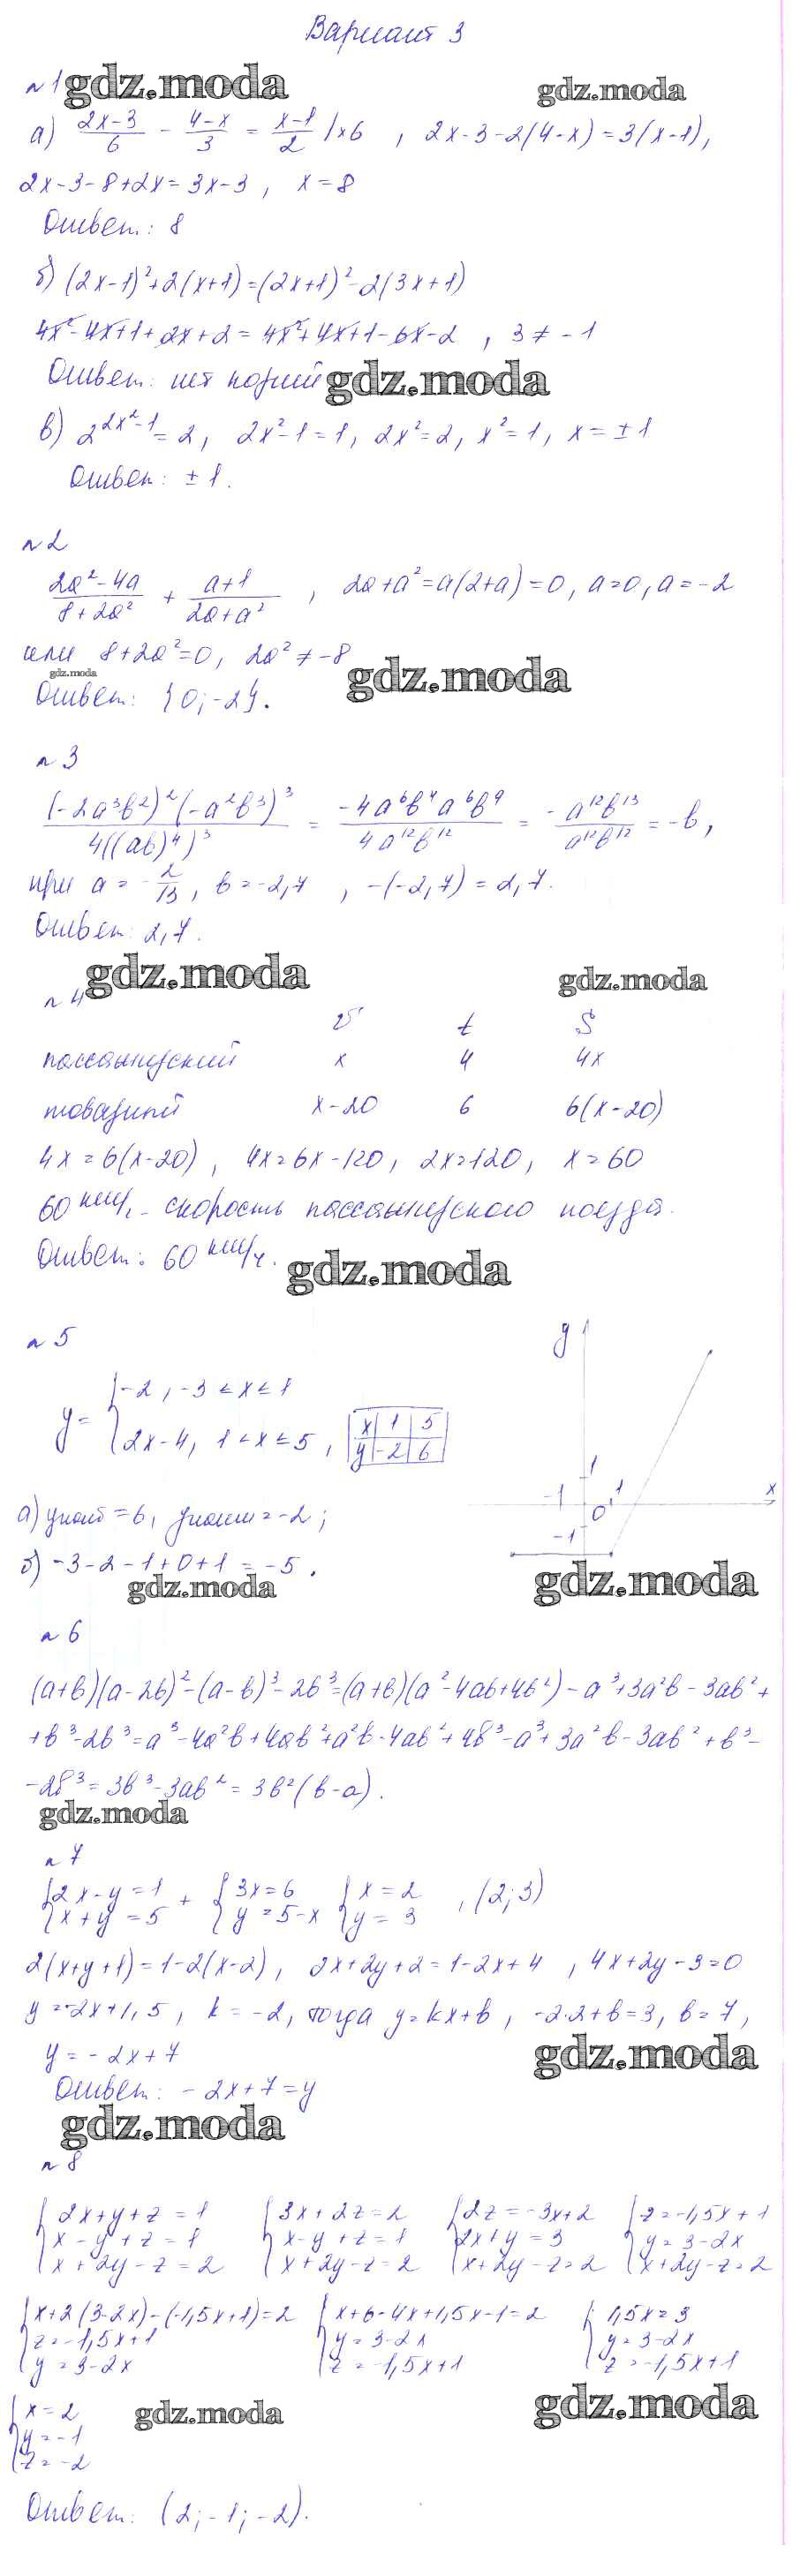 Вариант 3
№1 gdz.moda gdz.moda
а) (2x-3)/6 - (4-x)/3 = (x-1)/2 |×6 , 2x-3-2(4-x)=3(x-1),
2x-3-8+2x=3x-3, x=8
Ответ: 8
б) (2x-1)²+2(x+1)=(2x+1)²-2(3x+1)
4x²-4x+1+2x+2=4x²+4x+1-6x-2 , 3≠-1
Ответ: нет корней gdz.moda
в) 2^(2x²-1)=2, 2x²-1=1, 2x²=2, x²=1, x=±1
Ответ: ±1.
№2
(2a²-4a)/(8+2a²) + (a+1)/(2a+a²) , 2a+a²=a(2+a)=0, a=0, a=-2
или 8+2a²=0, 2a²≠-8
gdz.moda gdz.moda
Ответ: {0;-2}.
№3
((-2a³b²)²(-a²b³)³)/(4((ab)⁴)³) = (-4a⁶b⁴a⁶b⁹)/(4a¹²b¹²) = (-a¹²b¹³)/(a¹²b¹²) = -b,
при a=-2/13, b=-2,7 , -(-2,7)=2,7.
Ответ: 2,7.
gdz.moda gdz.moda
№4
v t S
пассажирский x 4 4x
товарный x-20 6 6(x-20)
4x=6(x-20), 4x=6x-120, 2x=120, x=60
60 км/ч - скорость пассажирского поезда.
Ответ: 60 км/ч. gdz.moda
№5
y={-2, -3≤x≤1
{2x-4, 1<x≤5, x 1 5
y -2 6
y
1
-1 0 1 x
-1
а) yнаиб=6, yнаим=-2;
б) -3-2-1+0+1=-5.
gdz.moda gdz.moda
№6
(a+b)(a-2b)²-(a-b)³-2b³=(a+b)(a²-4ab+4b²)-a³+3a²b-3ab²+
+b³-2b³=a³-4a²b+4ab²+a²b-4ab²+4b³-a³+3a²b-3ab²+b³-
-2b³=3b³-3ab²=3b²(b-a).
gdz.moda
№7
{2x-y=1 + {3x=6 {x=2 , (2;3)
{x+y=5 {y=5-x {y=3
2(x+y+1)=1-2(x-2), 2x+2y+2=1-2x+4 , 4x+2y-3=0
y=-2x+1,5, k=-2, тогда y=kx+b, -2·2+b=3, b=7,
y=-2x+7 gdz.moda
Ответ: -2x+7=y
gdz.moda
№8
{2x+y+z=1 {3x+2z=2 {2z=-3x+2 {z=-1,5x+1
{x-y+z=1 {x-y+z=1 {2x+y=3 {y=3-2x
{x+2y-z=2 {x+2y-z=2 {x+2y-z=2 {x+2y-z=2
{x+2(3-2x)-(-1,5x+1)=2 {x+6-4x+1,5x-1=2 {1,5x=3
{z=-1,5x+1 {y=3-2x {y=3-2x
{y=3-2x {z=-1,5x+1 {z=-1,5x+1
{x=2 gdz.moda gdz.moda
{y=-1
{z=-2
Ответ: (2;-1;-2).